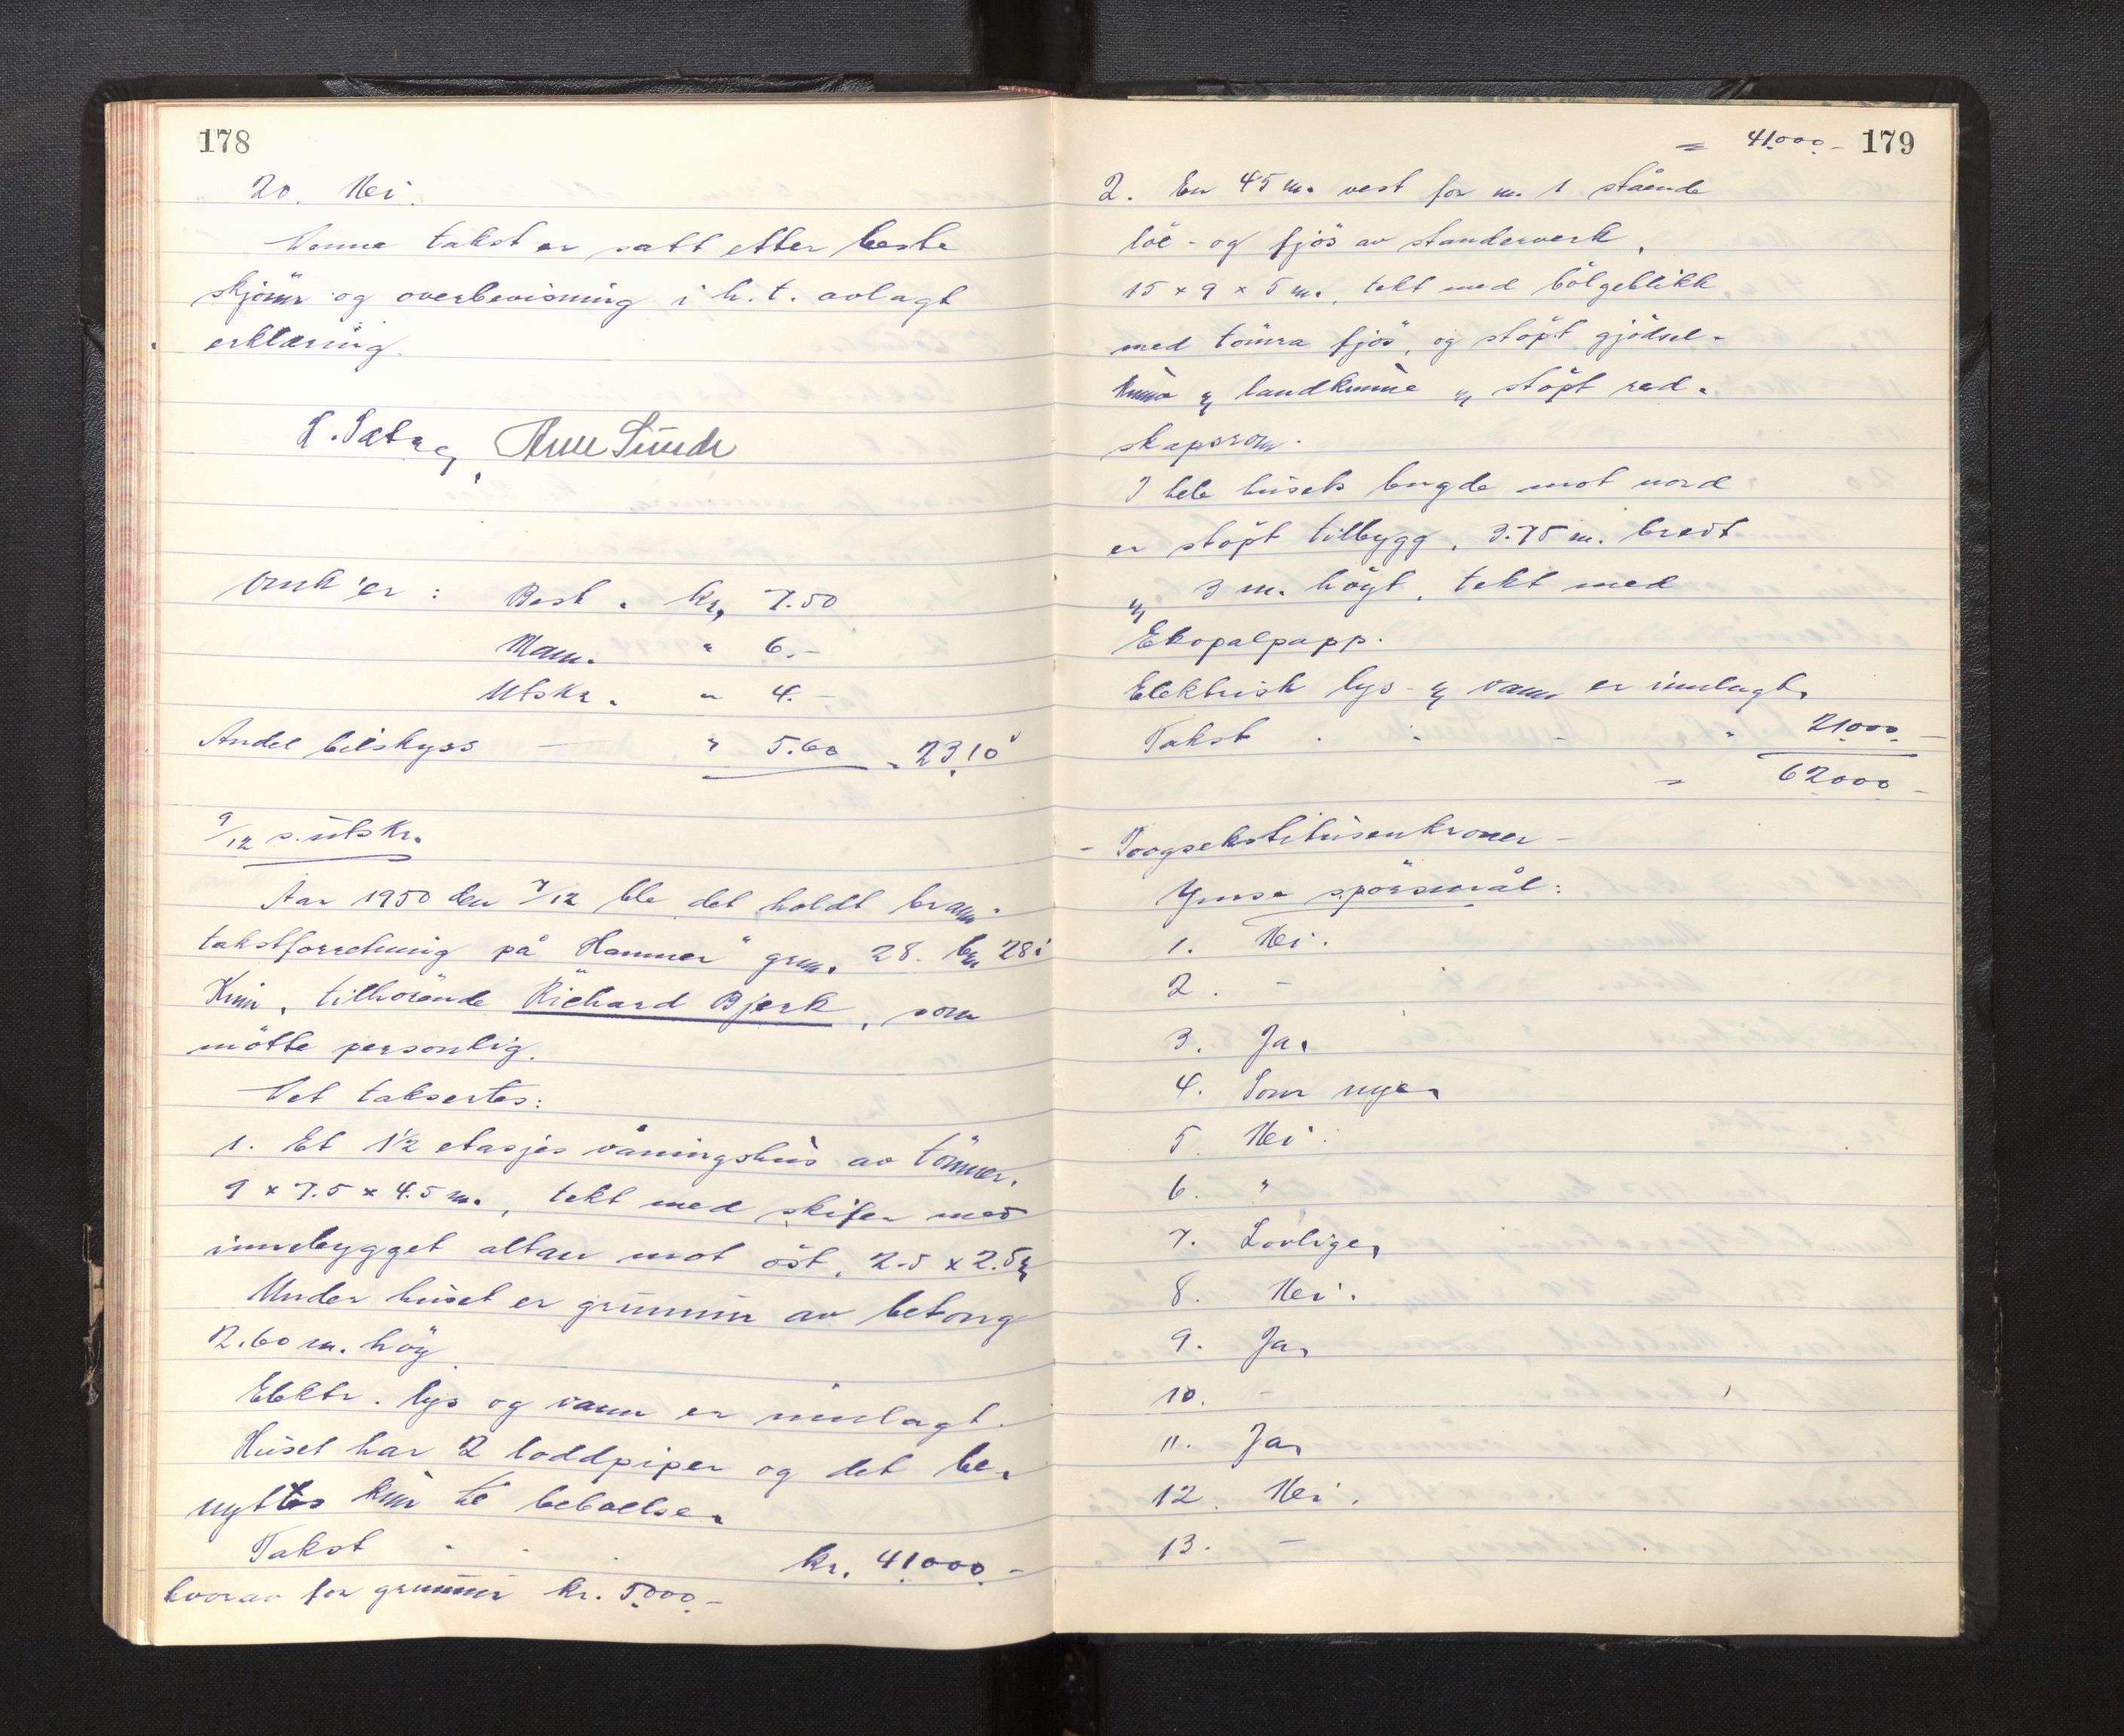 178
20. Nei.
Denne takst er satt etter beste
skjönn og overbevisning i h.t. avlagt
erklæring.
Arne Sunde
Omk'er: Best. kr. 7.50
Mann. " 6.-
Utskr. " 4.-
Andel bilskyss — " 5.60 = 23.10
9/12 s. utskr.
Aar 1950 den 7/12 ble det holdt brann-
takstforretning på "Hammer" grnr. 28. bnr 28 i
Kinn, tilhörende Richard Bjerk, som
mötte personlig.
Det taksertes:
1. Et 1½ etasjes våningshus av tömmer,
9 x 7.5 x 4.5 m., tekt med skifer med
innebygget altan mot öst, 2.5 x 2.5 m
Under huset er grunnmur av betong
2.60 m. höy
Elektr. lys og vann er innlagt.
Huset har 2 loddpiper og det be-
nyttes kun til beboelse.
Takst . . . kr. 41.000.-
hvorav for grunnmur kr. 5.000.-
= 41.000.- 179
2. En 45 m. vest for nr. 1 stående
löe- og fjös av standerverk,
15 x 9 x 5 m., tekt med bölgeblikk,
med tömra fjös, og stöpt gjödsel-
kum og landkumme og stöpt red-
skapsrom.
I hele husets lengde mot nord
er stöpt tilbygg, 3.75 m. bredt
og 3 m. höyt, tekt med
Ekopalpapp.
Elektrisk lys- og vann er innlagt.
Takst . . - " 21.000.-
= 62.000.-
- Toogsekstitusenkroner -
Ymse spörsmål:
1. Nei.
2. -
3. Ja.
4. Som nye.
5. Nei.
6. "
7. Lovlige.
8. Nei.
9. Ja.
10. -
11. Ja.
12. Nei.
13. -